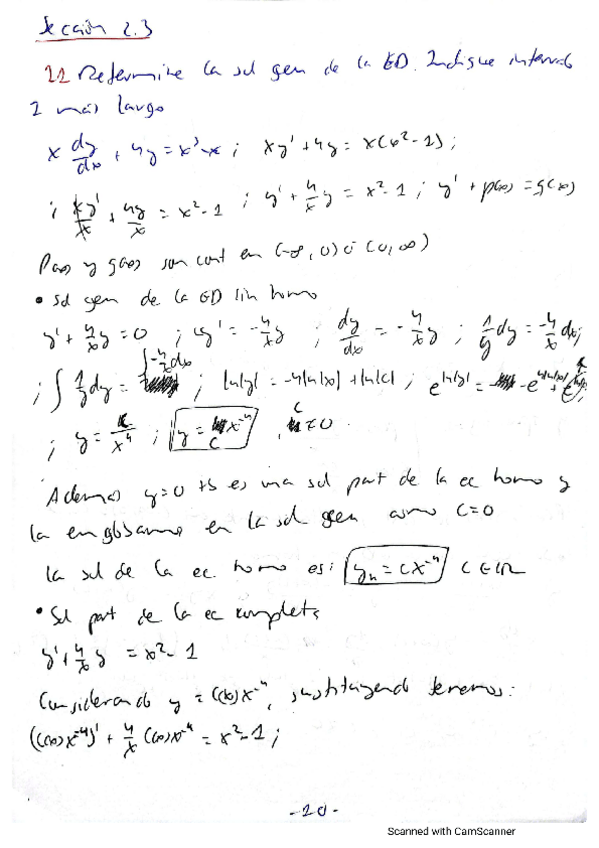 Sección 2.3
11 Determine la sol gen de la ED. Indique intervalo
I más largo
x dy/dx + 4y = x³-x ; xy' + 4y = x(x²-1) ;
; xy'/x + 4y/x = x²-1 ; y' + 4/x y = x²-1 ; y' + p(x) = g(x)
P(x) y g(x) son cont en (-∞, 0) ó (0, ∞)
• Sol gen de la ED lin homo
y' + 4/x y = 0 ; y' = -4/x y ; dy/dx = -4/x y ; 1/y dy = -4/x dx ;
; ∫ 1/y dy = ∫ -4/x dx ; ln|y| = -4ln|x| + ln|c| ;
; y = c/x⁴ ; y = c x⁻⁴ c≠0
Además y=0 tb es una sol part de la ec homo y
la englobamos en la sol gen como C=0
la sol de la ec homo es: yₕ = Cx⁻⁴ C∈ℝ
• Sol part de la ec completa
y' + 4/x y = x²-1
Considerando y = C(x)x⁻⁴, sustituyendo tenemos:
(C(x)x⁻⁴)' + 4/x C(x)x⁻⁴ = x²-1 ;
-20-
Scanned with CamScanner